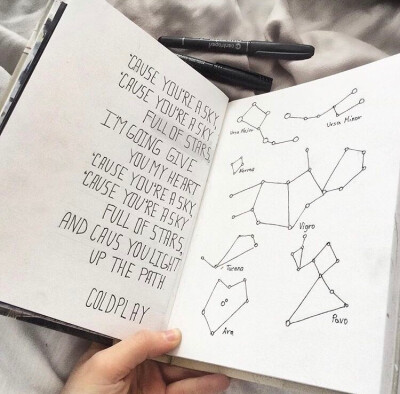 'CAUSE YOU'RE A SKY
'CAUSE YOU'RE A SKY
FULL OF STARS,
I'M GOING GIVE
YOU MY HEART
'CAUSE YOU'RE A SKY
'CAUSE YOU'RE A SKY
FULL OF STARS,
AND CAUS YOU LIGHT
UP THE PATH
COLDPLAY
Ursa Minor
Norma
Vigro
Pavo
Ara